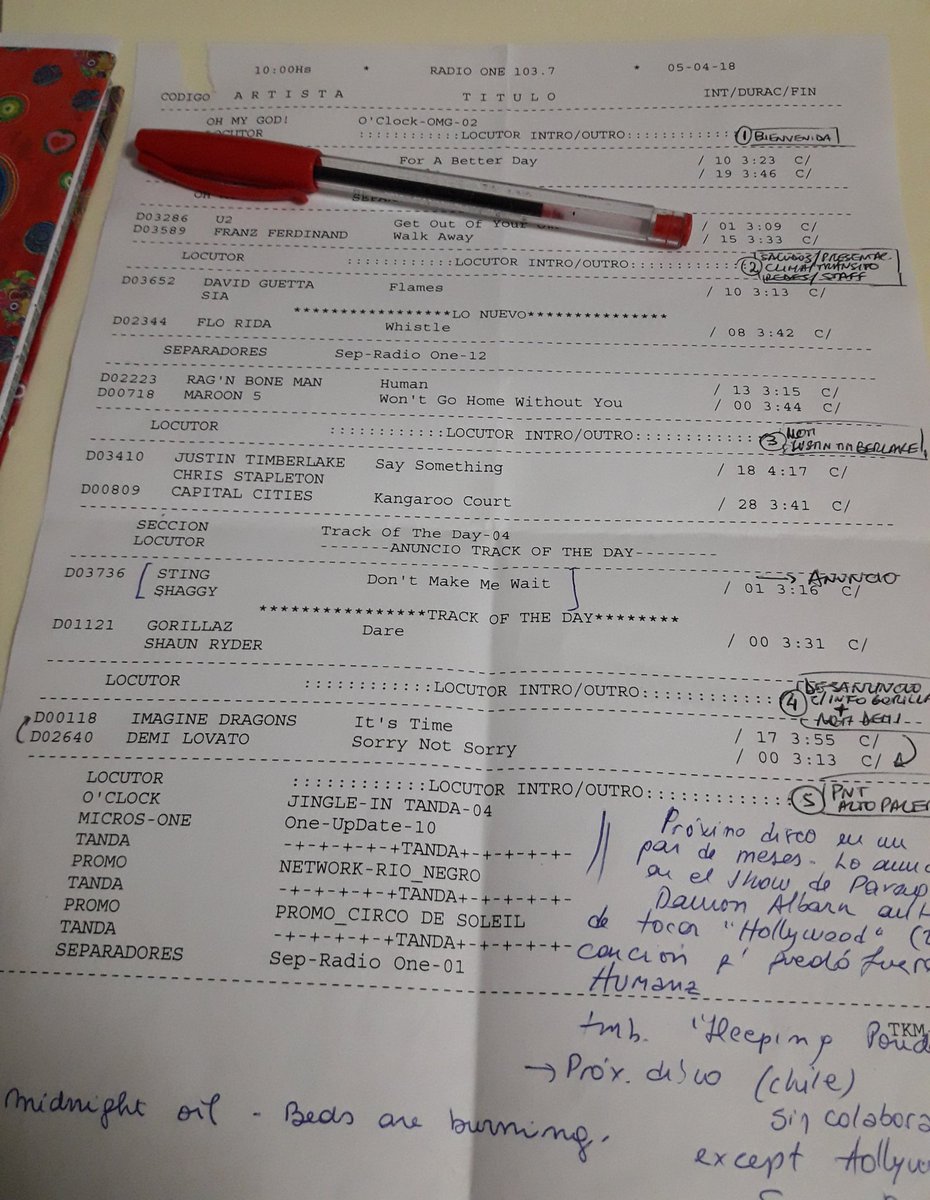 10:00Hs * RADIO ONE 103.7 * 05-04-18
CODIGO A R T I S T A T I T U L O INT/DURAC/FIN
OH MY GOD! O'Clock-OMG-02
LOCUTOR ::::::::::::LOCUTOR INTRO/OUTRO:::::::::::: 1 BIENVENIDA
For A Better Day / 10 3:23 C/
/ 19 3:46 C/
D03286 U2 Get Out Of Your / 01 3:09 C/
D03589 FRANZ FERDINAND Walk Away / 15 3:33 C/
LOCUTOR ::::::::::::LOCUTOR INTRO/OUTRO:::::::::::: 2 SALUDOS/PRESENTAC.
CLIMA/TRANSITO
REDES/STAFF
D03652 DAVID GUETTA Flames / 10 3:13 C/
SIA
*****************LO NUEVO***************
D02344 FLO RIDA Whistle / 08 3:42 C/
SEPARADORES Sep-Radio One-12
D02223 RAG'N BONE MAN Human / 13 3:15 C/
D00718 MAROON 5 Won't Go Home Without You / 00 3:44 C/
LOCUTOR ::::::::::::LOCUTOR INTRO/OUTRO:::::::::::: 3 NOTI
JUSTIN TIMBERLAKE
D03410 JUSTIN TIMBERLAKE Say Something / 18 4:17 C/
CHRIS STAPLETON
D00809 CAPITAL CITIES Kangaroo Court / 28 3:41 C/
SECCION Track Of The Day-04
LOCUTOR -------ANUNCIO TRACK OF THE DAY--------
D03736 STING Don't Make Me Wait / 01 3:16 C/ → ANUNCIO
SHAGGY
****************TRACK OF THE DAY********
D01121 GORILLAZ Dare / 00 3:31 C/
SHAUN RYDER
LOCUTOR ::::::::::::LOCUTOR INTRO/OUTRO:::::::::::: 4 DESANUNCIO
C/INFO GORILLA
+
NOTI DEMI
D00118 IMAGINE DRAGONS It's Time / 17 3:55 C/
D02640 DEMI LOVATO Sorry Not Sorry / 00 3:13 C/
LOCUTOR ::::::::::::LOCUTOR INTRO/OUTRO:::::::::::: 5 PNT
ALTO PALER
O'CLOCK JINGLE-IN TANDA-04
MICROS-ONE One-UpDate-10
TANDA -+-+-+-+-+TANDA+-+-+-+-+-
PROMO NETWORK-RIO_NEGRO
TANDA -+-+-+-+-+TANDA+-+-+-+-+-
PROMO PROMO_CIRCO DE SOLEIL
TANDA -+-+-+-+-+TANDA+-+-+-+-+-
SEPARADORES Sep-Radio One-01
Próximo disco en un
par de meses. Lo anunc
en el show de Parag
Damon Albarn ant
de tocar "Hollywood" (
canción q' quedó fuera
Humanz
TKM
tmb. "Sleeping Powd
→ Próx. disco (chile)
Sin colabora
except Hollyw
midnight oil - Beds are burning.